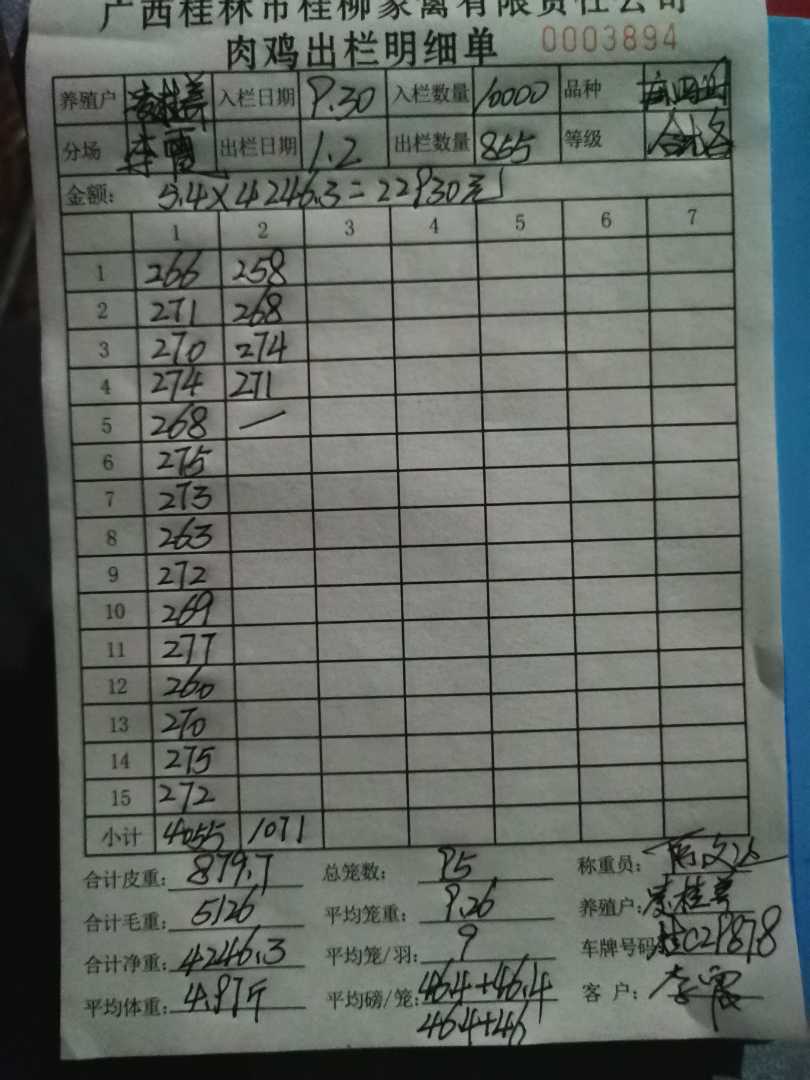 广西桂林市桂柳家禽有限责任公司
肉鸡出栏明细单 0003894
养殖户 凌桂善 入栏日期 9.30 入栏数量 10000 品种
分场 李霞 出栏日期 1.2 出栏数量 855 等级 合格
金额: 5.4×4246.3=22930元
1 2 3 4 5 6 7
1 266 258
2 271 268
3 270 274
4 274 271
5 268 —
6 275
7 273
8 263
9 272
10 269
11 277
12 260
13 270
14 275
15 272
小计 4055 1071
合计皮重: 879.7 总笼数: 95 称重员:
合计毛重: 5126 平均笼重: 9.26 养殖户: 凌桂善
合计净重: 4246.3 平均笼/羽: 9 车牌号码: 桂C29878
平均体重: 4.97斤 平均磅/笼: 46.4+46.4 客户: 李霞
46.4+46